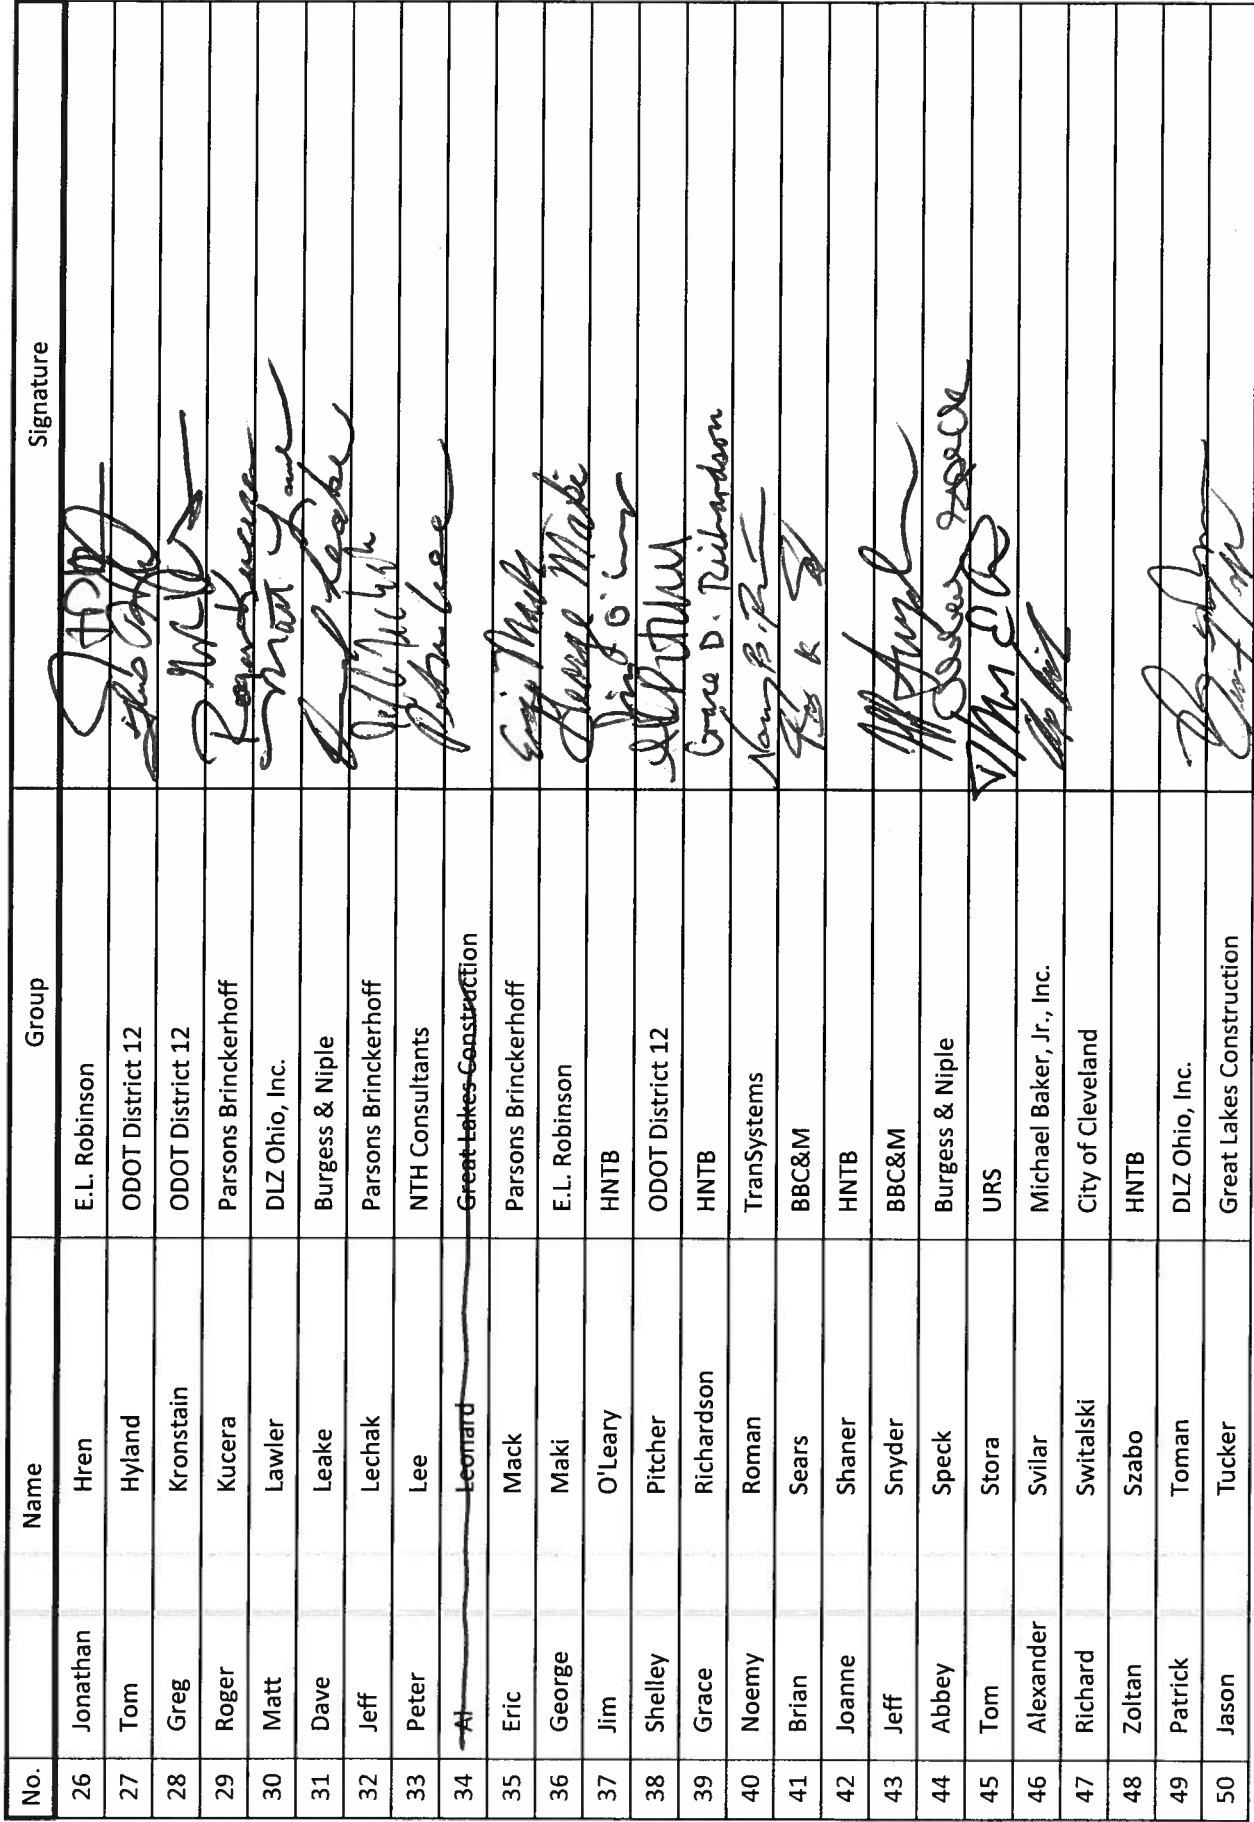 No. Name Group Signature
26 Jonathan Hren E.L. Robinson
27 Tom Hyland ODOT District 12
28 Greg Kronstain ODOT District 12
29 Roger Kucera Parsons Brinckerhoff Roger Kucera
30 Matt Lawler DLZ Ohio, Inc. Matt
31 Dave Leake Burgess & Niple Leake
32 Jeff Lechak Parsons Brinckerhoff
33 Peter Lee NTH Consultants Lee
34 Al Leonard Great Lakes Construction
35 Eric Mack Parsons Brinckerhoff Eric Mack
36 George Maki E.L. Robinson George Maki
37 Jim O'Leary HNTB
38 Shelley Pitcher ODOT District 12
39 Grace Richardson HNTB Grace D. Richardson
40 Noemy Roman TranSystems
41 Brian Sears BBC&M
42 Joanne Shaner HNTB
43 Jeff Snyder BBC&M
44 Abbey Speck Burgess & Niple
45 Tom Stora URS
46 Alexander Svilar Michael Baker, Jr., Inc.
47 Richard Switalski City of Cleveland
48 Zoltan Szabo HNTB
49 Patrick Toman DLZ Ohio, Inc.
50 Jason Tucker Great Lakes Construction